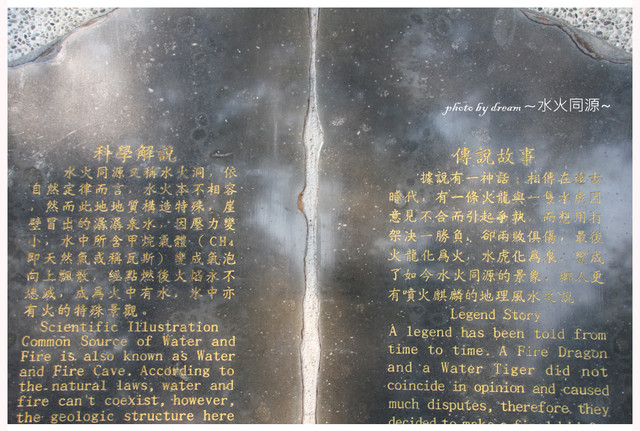 photo by dream ~水火同源~
科學解說
水火同源又稱水火洞，依
自然定律而言，水火本不相容
，然而此地地質構造特殊，崖
壁冒出的潺潺泉水，因壓力變
小，水中所含甲烷氣體（CH4
即天然氣或稱瓦斯）變成氣泡
向上飄散，經點燃後火焰永不
熄滅，成為火中有水。水中亦
有火的特殊景觀。
Scientific Illustration
Common Source of Water and
Fire is also known as Water
and Fire Cave. According to
the natural laws, water and
fire can't coexist, however,
the geologic structure here
傳說故事
據說有一神話：相傳在
時代，有一條火龍與一隻水虎因
意見不合而引起爭執，而想用打
架決一勝負，卻兩敗俱傷，最後
火龍化為火，水虎化為泉，
了如今水火同源的景象，更
有噴火麒麟的地理風水之說
Legend Story
A legend has been told from
time to time. A Fire Dragon
and a Water Tiger did not
coincide in opinion and caused
much disputes, therefore, they
decided to make a